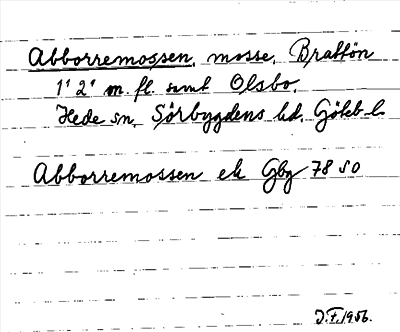 Abborremossen, mosse, Brattön
1¹ 2¹ m. fl. samt Olsbo.
Hede sn, Sörbygdens hd. Göteb l.
Abborremossen ek Gbg 78 SO
J.F. 1956.